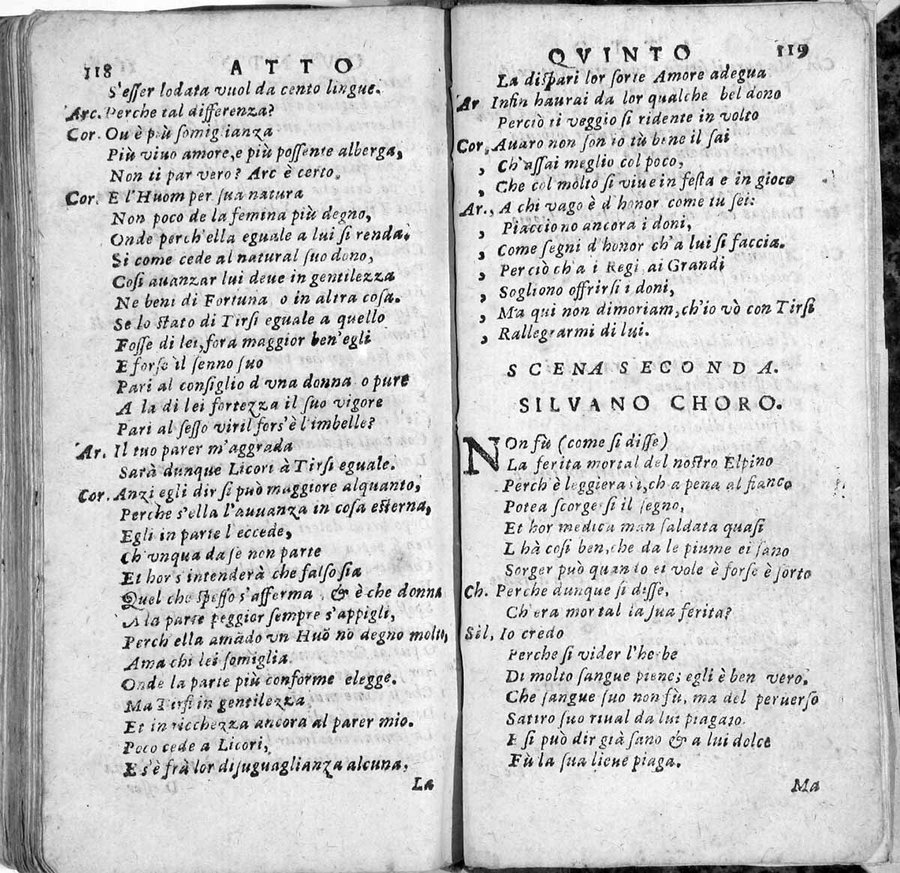 118 ATTO
S'esser lodata vuol da cento lingue.
Arc. Perche tal differenza?
Cor. Ou è più somiglianza
Più viuo amore, e più possente alberga,
Non ti par vero? Arc è certo.
Cor. E l'Huom per sua natura
Non poco de la femina più degno,
Onde perch'ella eguale a lui si renda.
Si come cede al natural suo dono,
Cosi auanzar lui deue in gentilezza
Ne beni di Fortuna, o in altra cosa.
Se lo stato di Tirsi eguale a quello
Fosse di lei, fora maggior ben'egli
E forse il senno suo
Pari al consiglio d vna donna o pure
A la di lei fortezza il suo vigore
Pari al sesso viril fors'è l'imbelle?
Ar. Il tuo parer m'aggrada
Sarà dunque Licori à Tirsi eguale.
Cor. Anzi egli dir si può maggiore alquanto,
Perche s'ella l'auuanza in cosa esterna,
Egli in parte l'eccede,
Ch'vnqua da sè non parte
Et hor s'intenderà che falso sia
Quel che spesso s'afferma, & è che donna
A la parte peggior sempre s'appigli,
Perch ella amãdo vn Huõ nò degno molto,
Ama chi lei somiglia.
Onde la parte più conforme elegge.
Ma Tirsi in gentilezza
Et in ricchezza ancora al parer mio.
Poco cede a Licori,
E s'è frà lor disuguaglianza alcuna,
La
QVINTO 119
La dispari lor sorte Amore adegua
Ar Infin haurai da lor qualche bel dono
Perciò ti veggio si ridente in volto
Cor, Auaro non son io tù bene il sai
, Ch'assai meglio col poco,
, Che col molto si viue in festa e in gioco
Ar., A chi vago è d honor come tu sei:
, Piacciono ancora i doni,
, Come segni d honor ch'a lui si faccia.
, Perciò ch'a i Regi ai Grandi
, Sogliono offrirsi i doni,
, Ma qui non dimoriam, ch'io vò con Tirsi
, Rallegrarmi di lui.
SCENA SECONDA.
SILVANO CHORO.
NOn fù (come si disse)
La ferita mortal del nostro Elpino
Perch'è leggiera sì, ch a pena al fianco
Potea scorgersi il segno,
Et hor medica man saldata quasi
L hà cosi ben, che da le piume ei sano
Sorger può quanto ei vole è forse è sorto
Ch. Perche dunque si disse,
Ch'era mortal la sua ferita?
Sil, Io credo
Perche si vider l'herbe
Di molto sangue piene; egli è ben vero.
Che sangue suo non fù, ma del peruerso
Satiro suo riual da lui piagato.
E si può dir già sano & a lui dolce
Fù la sua lieue piaga.
Ma